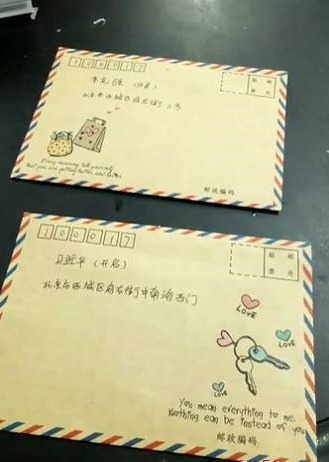 100017
李克强 (开启)
北京市西城区府右街 2号
贴 邮
票 处
Every morning tell yourself
that you are getting better and better
邮政编码
100017
习近平 (开启)
北京市西城区府右街中南海西门
贴 邮
票 处
LOVE
LOVE
LOVE
You mean everything to me.
Nothing can be instead of you
邮政编码